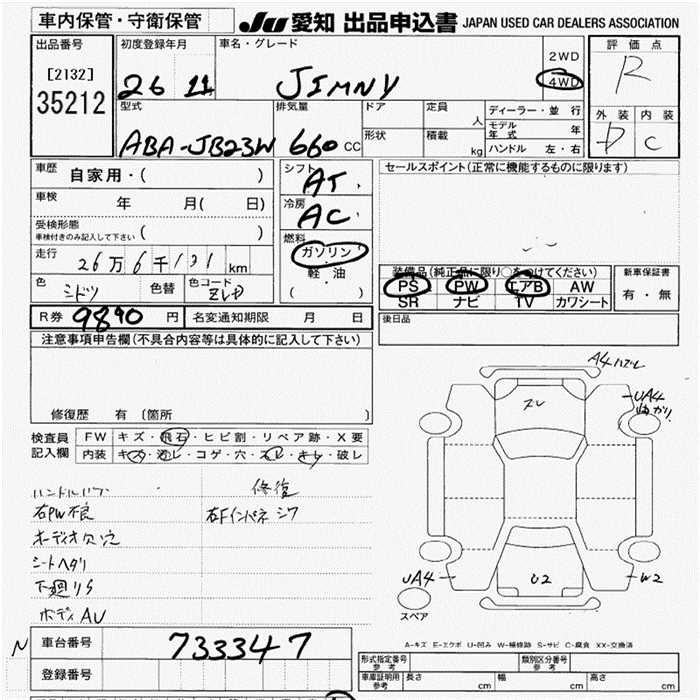 車内保管・守衛保管 JU 愛知 出品申込書 JAPAN USED CAR DEALERS ASSOCIATION
出品番号 初度登録年月 車名・グレード 2WD 評価点
[2132] 26 11 JIMNY 4WD R
35212 型式 排気量 ドア 定員 人 ディーラー・並行 外装 内装
ABA-JB23W 660 CC 形状 積載 kg モデル年式 年 D C
ハンドル 左・右
車歴 自家用・( ) シフト AT セールスポイント(正常に機能するものに限ります)
車検 年 月( 日) 冷房 AC
受検形態 車検付きのみ記入して下さい ( )
燃料 ガソリン 軽油 ( )
走行 26万6千131km
色 色替 色コード ZLD
装備品(純正品に限り○をつけてください) 新車保証書
PS PW エアB AW 有・無
SR ナビ TV カワシート
R券 9890 円 名変通知期限 月 日 後日品
注意事項申告欄(不具合内容等は具体的に記入して下さい)
修復歴 有 (箇所 )
A4
UA4
検査員 FW キズ・飛石・ヒビ割・リペア跡・X要
記入欄 内装 キズ・汚レ・コゲ・穴・スレ・キレ・破レ
修復
右PW不良 右Fインパネ シワ
オーディオ欠
シートヘタリ
下廻リS
ボディAU
UA4 U2 W2
スペア
A-キズ E-エクボ U-凹み W-補修跡 S-サビ C-腐食 XX-交換済
N 車台番号 733347
登録番号
形式指定番号 参考 類別区分番号 参考
車庫証明用 参考 長さ cm 幅 cm 高さ cm